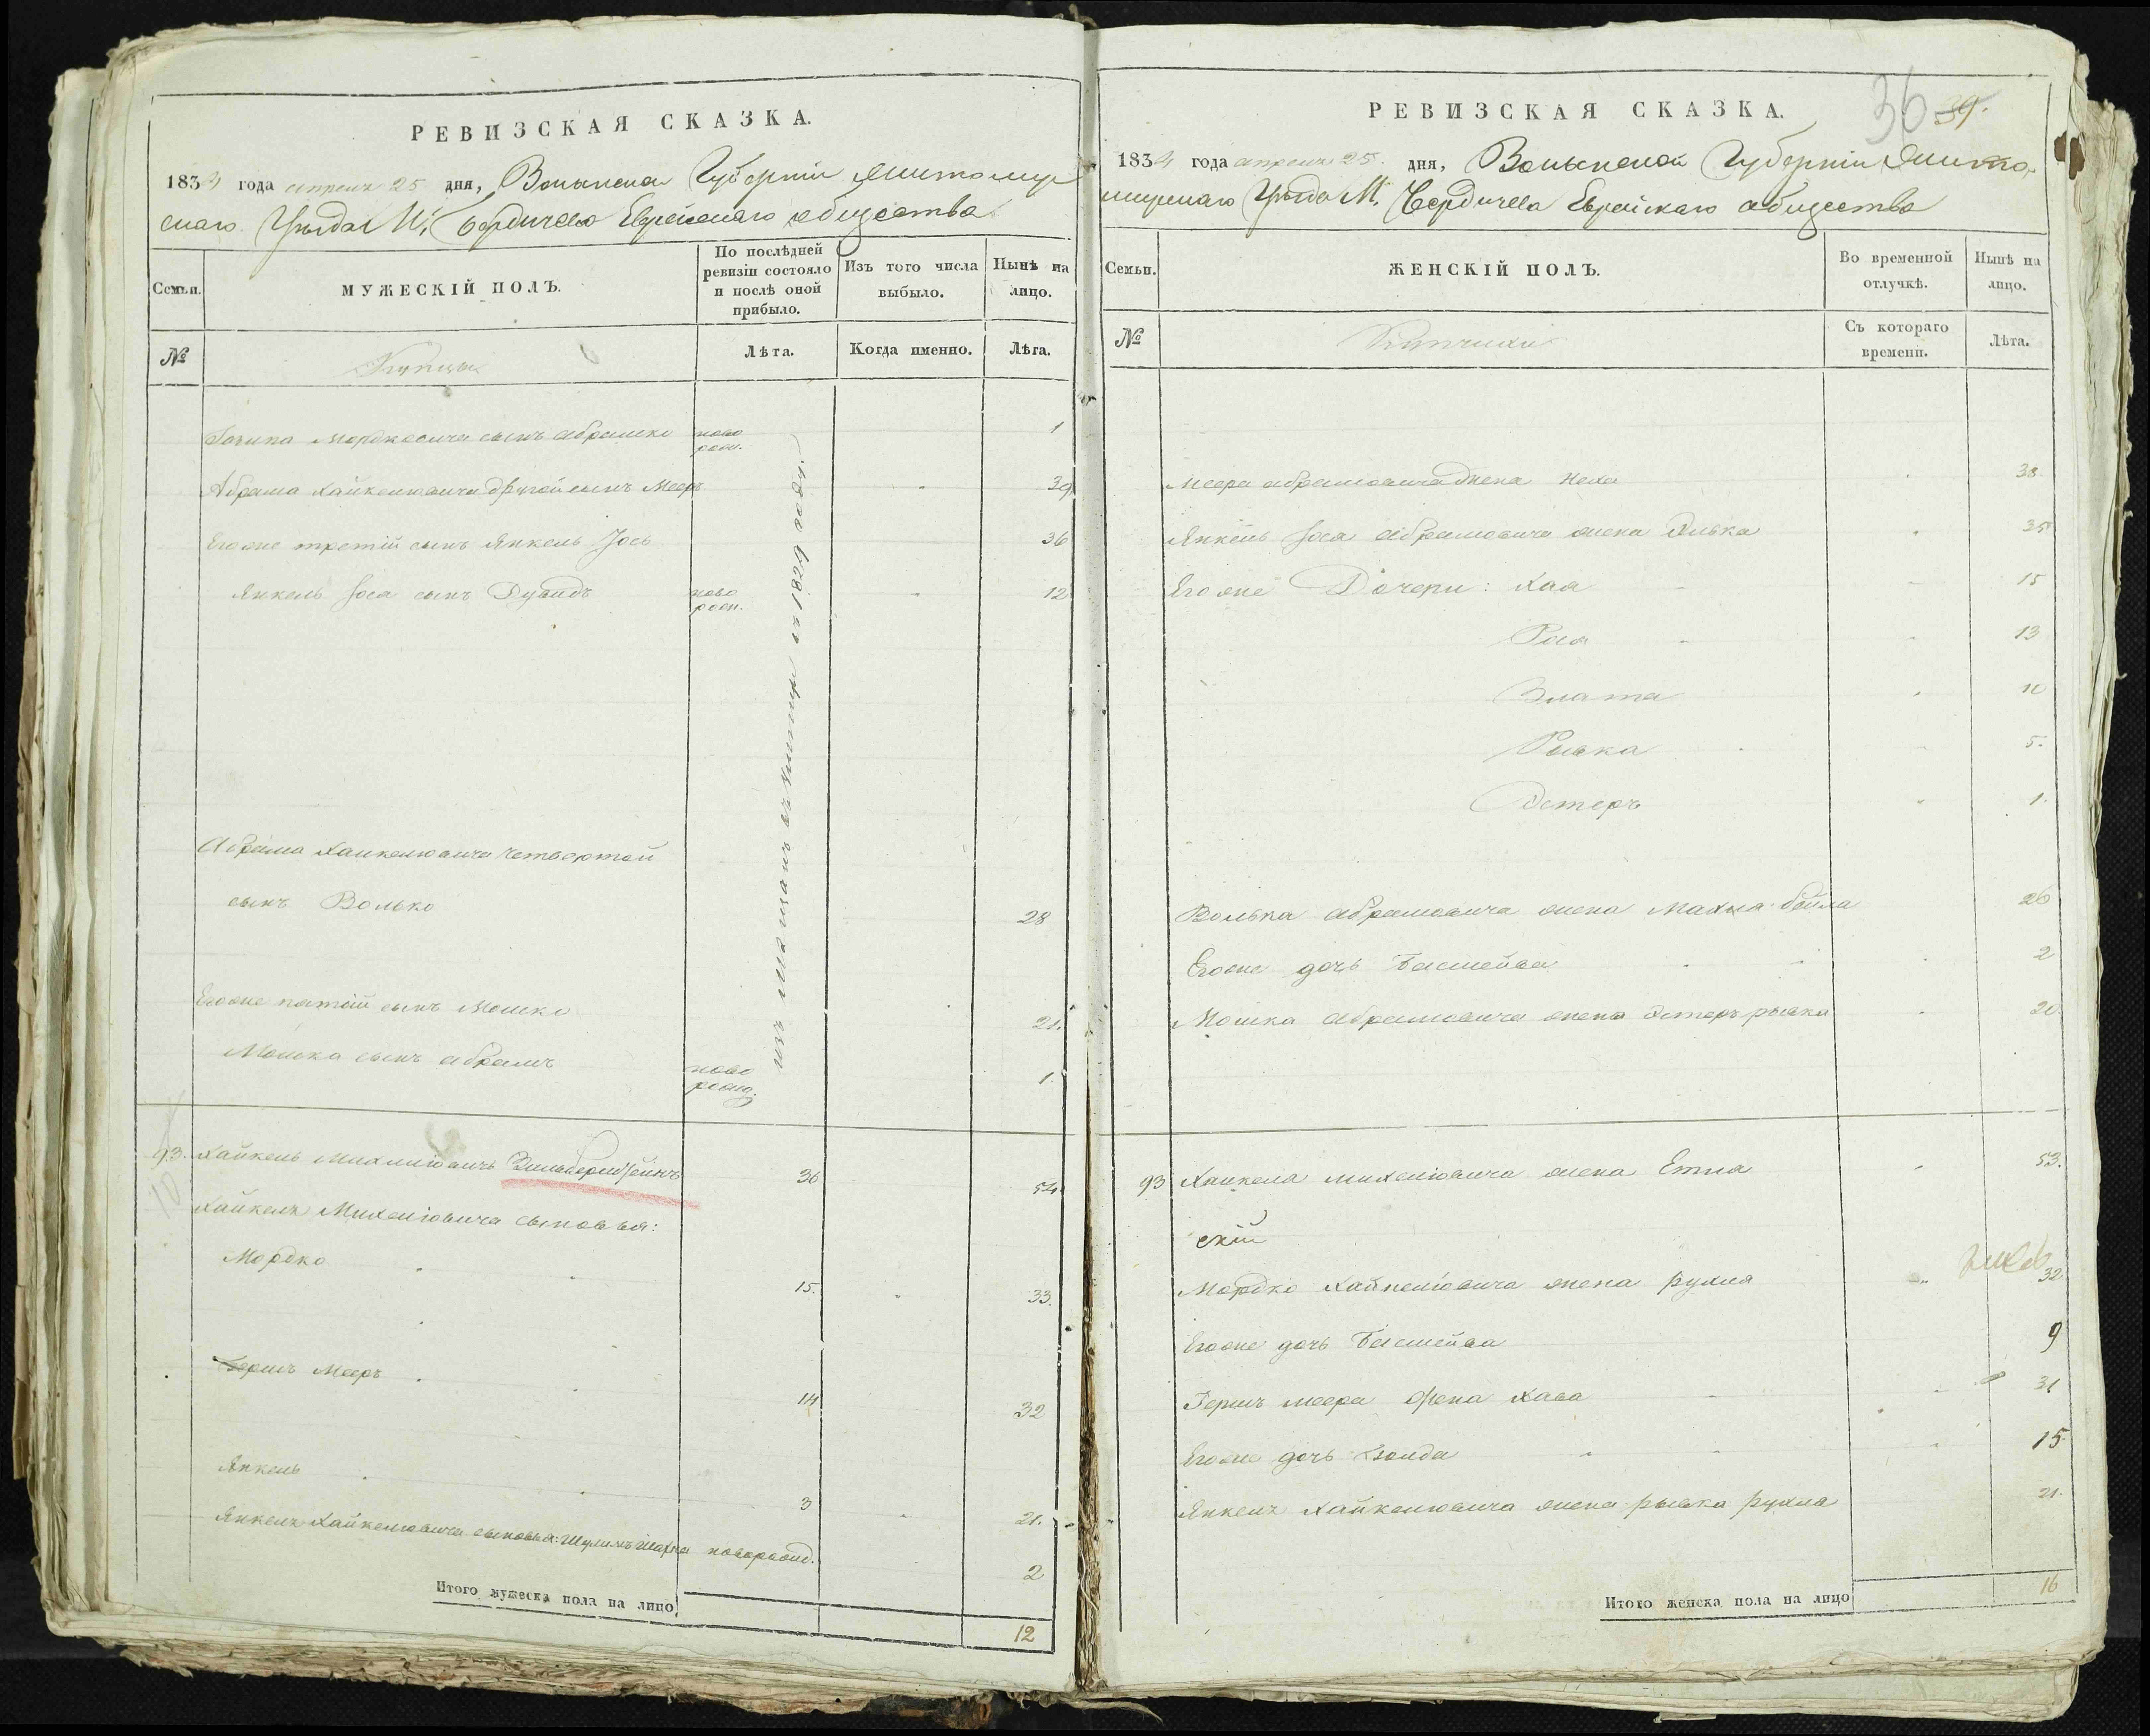 РЕВИЗСКАЯ СКАЗКА.
1834 года апреля 25 дня, Волынской Губернiи Житомир
скаго Уезда М. Бердичева Еврейскаго общества
Семьи.
МУЖЕСКIЙ ПОЛЪ.
По послѣдней ревизiи состояло и послѣ оной прибыло.
Изъ того числа выбыло.
Нынѣ на лицо.
№
Купцы
Лѣта.
Когда именно.
Лѣта.
Мордковича сынъ Абрамко ново рожд. 1
Абрама Хайкелювича другой сынъ Мееръ 39
Егоже третiй сынъ Янкель Iось 36
Янкель Iоса сынъ Дувидъ ново рожд. 12
изъ мещанъ въ 1829 году
Абрама Хайкелювича четвертой
сынъ Волько 28
Егоже пятый сынъ Мошко 21.
Мошка сынъ Абрамъ ново рожд. 1.
93. Хайкель Михелювичъ Зильберштейнъ 36 54.
Хайкеля Михелювича сыновья:
Мордко 15. 33.
Гершъ Мееръ 14 32
Янкель 3 21.
Янкеля Хайкелювича сыновья: Шулимъ Шахна новорожд. 2
Итого мужеска пола на лицо 12
РЕВИЗСКАЯ СКАЗКА.
36 39.
1834 года апреля 25 дня, Волынской Губернiи Жито-
мирскаго Уезда М. Бердичева Еврейскаго общества
Семьи.
ЖЕНСКIЙ ПОЛЪ.
Во временной отлучкѣ.
Нынѣ на лицо.
№
Купчихи
Съ котораго времени.
Лѣта.
Меера Абрамовича жена Неха 38
Янкель Iоса Абрамовича жена 35
Егоже Дочери: Хая 15
Рося 13
Злата 10
Рывка 5.
Эстеръ 1.
Волька Абрамовича жена Махля Бейла 26
Егоже дочь Басшейва 2
Мошка Абрамовича жена Эстеръ рывка 20.
93 Хайкеля Михелювича жена Етля 53.
скiй
Мордко Хайкелювича жена рухля 32
Егоже дочь Басшейва 9
Гершъ Меера жена Хава 31
Егоже дочь 15.
Янкеля Хайкелювича жена рывка рухля 21.
Итого женска пола на лицо 16